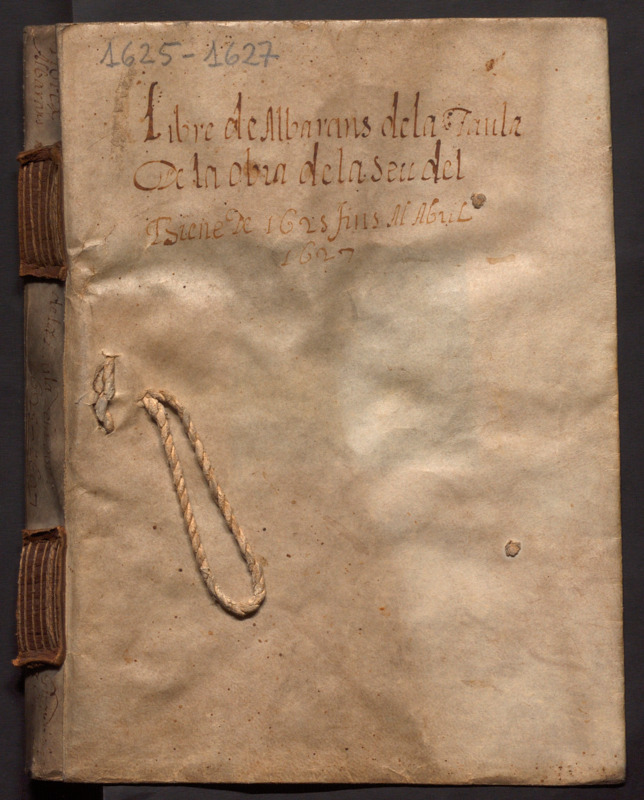 1625-1627
Libre de Albarans de la Taula
De la obra de la Seu del
de 1625 fins Al Abril
1627